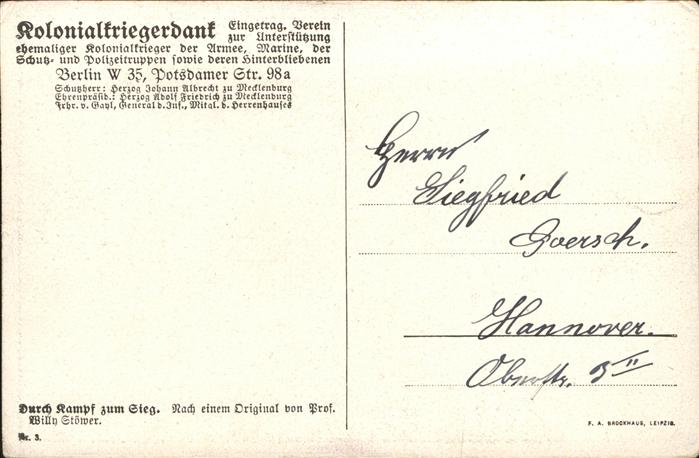 Kolonialkriegerdank Eingetrag. Verein
zur Unterstützung
ehemaliger Kolonialkrieger der Armee, Marine, der
Schutz- und Polizeitruppen sowie deren Hinterbliebenen
Berlin W 35, Potsdamer Str. 98a
Schutzherr: Herzog Johann Albrecht zu Mecklenburg
Ehrenpräsid.: Herzog Adolf Friedrich zu Mecklenburg
Frhr. v. Gayl, General d. Inf., Mitgl. d. Herrenhauses
Herrn
Siegfried
Goersch.
Hannover.
II
Durch Kampf zum Sieg. Nach einem Original von Prof.
Willy Stöwer.
Nr. 3.
F. A. BROCKHAUS, LEIPZIG.